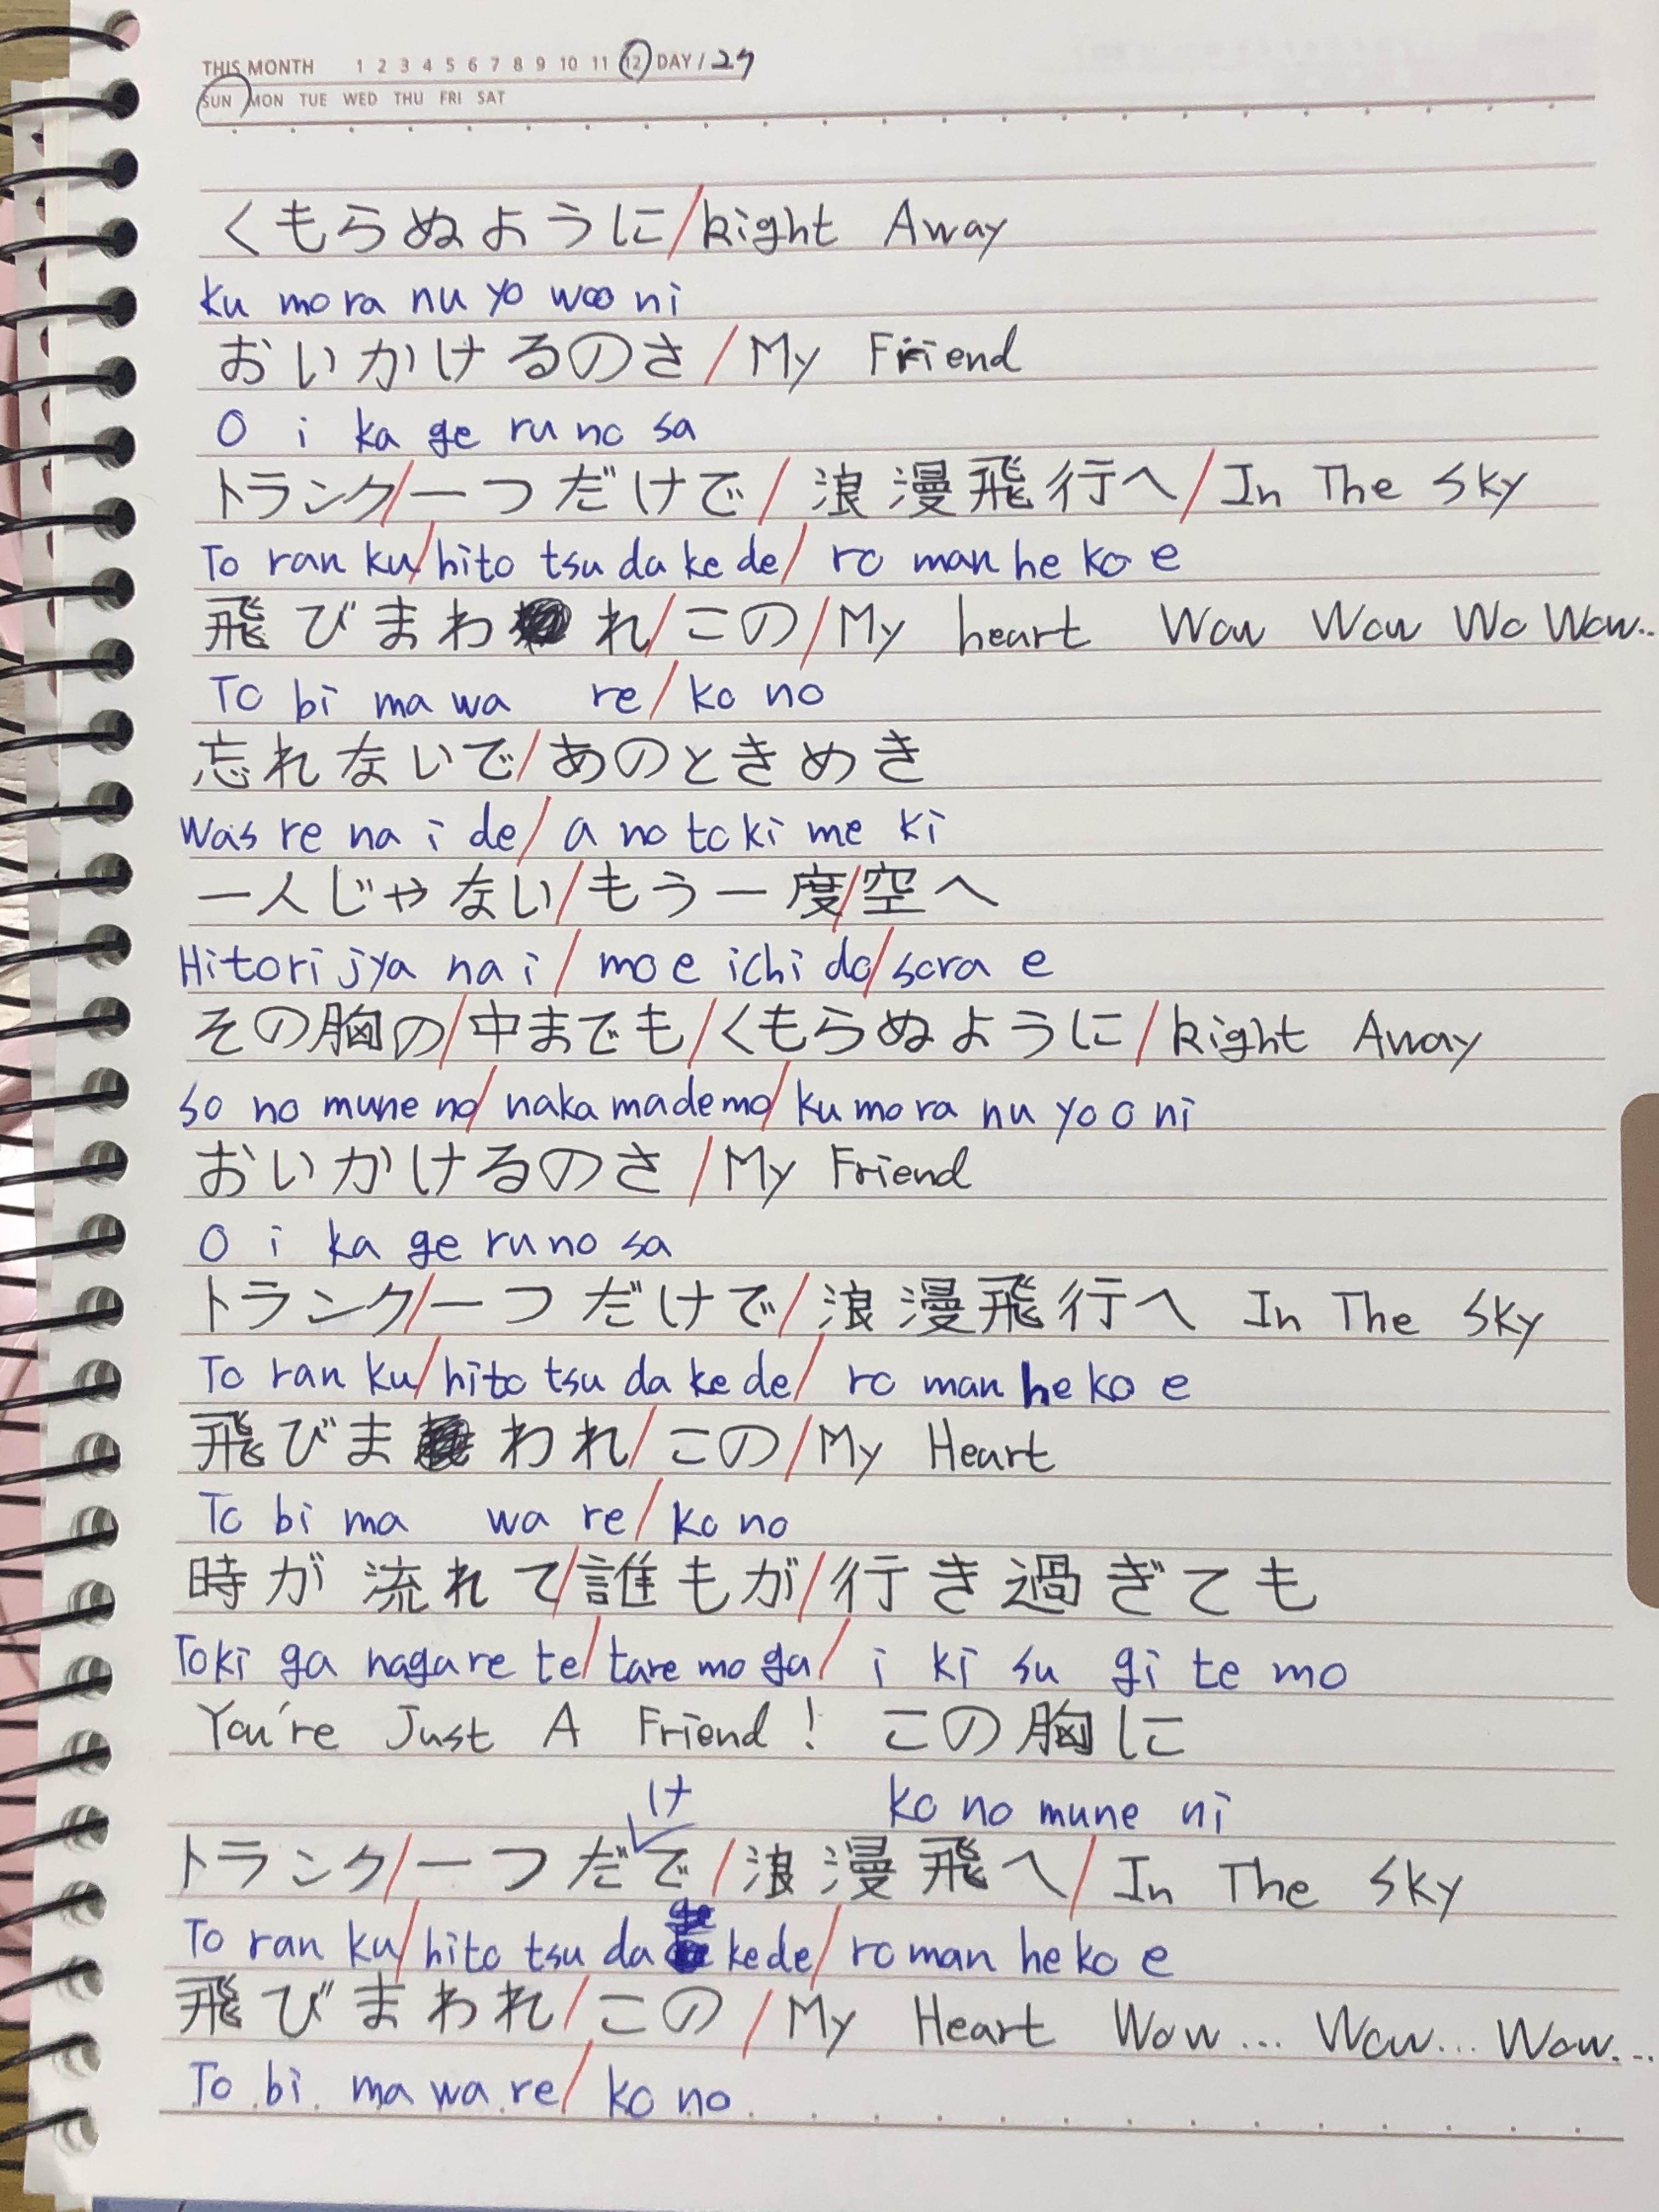 THIS MONTH 1 2 3 4 5 6 7 8 9 10 11 12 DAY / 27
SUN MON TUE WED THU FRI SAT
くもらぬように/Right Away
ku mo ra nu yo woo ni
おいかけるのさ/My Friend
O i ka ge ru no sa
トランク/一つだけで/浪漫飛行へ/In The Sky
To ran ku/hito tsu da ke de/ ro man he ko e
飛びまわれ/この/My heart Wow Wow Wo Wow..
To bi ma wa re/ko no
忘れないで/あのときめき
Was re na i de/a no to ki me ki
一人じゃない/もう一度/空へ
Hitori jya na i/mo e ichi do/sora e
その胸の/中までも/くもらぬように/Right Away
so no mune no/naka mademo/ku mo ra nu yo o ni
おいかけるのさ/My Friend
O i ka ge ru no sa
トランク/一つだけで/浪漫飛行へ In The Sky
To ran ku/hito tsu da ke de/ ro man he ko e
飛びまわれ/この/My Heart
To bi ma wa re/ko no
時が流れて/誰もが/行き過ぎても
Toki ga nagare te/tare mo ga/ i ki su gi te mo
You're Just A Friend! この胸に
け ko no mune ni
トランク/一つだで/浪漫飛へ/In The Sky
To ran ku/hito tsu da ke de/ro man he ko e
飛びまわれ/この/My Heart Wow... Wow... Wow...
To bi ma wa re/ko no